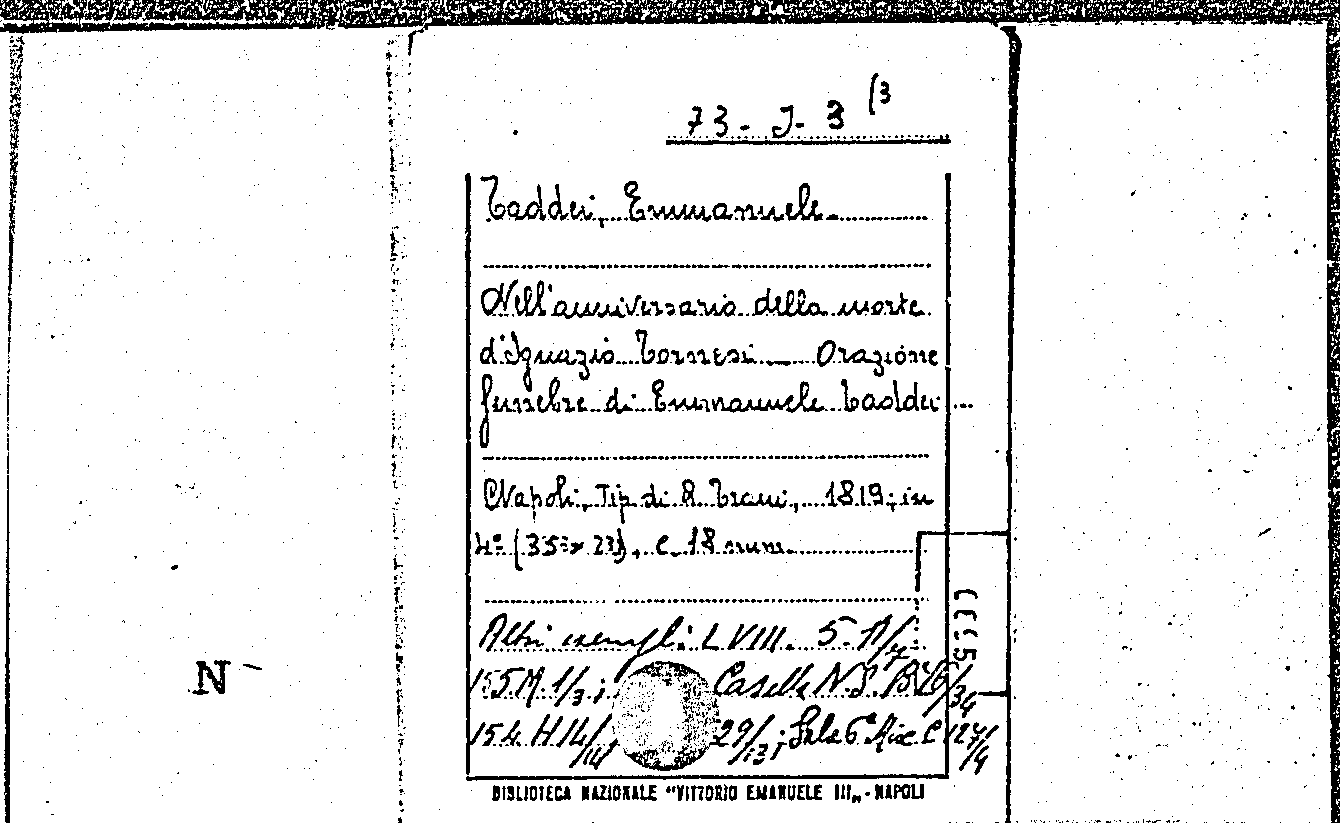 73 - J - 3 (3
Taddei, Emmanuele
Nell'anniversario della morte
d'Ignazio Tornesi _ Orazione
funebre di Emmanuele Taddei ...
Napoli, Tip. di A. Trani, 1819; in
4º (35 x 23), c. 18 num.
Altri esempl: L VIII. 5. A/7
155 M 1/3; Casella N.S. B
154 H 14/14 29/13; Sala 6ª C 127/4
N -
BIBLIOTECA NAZIONALE "VITTORIO EMANUELE III„ - NAPOLI